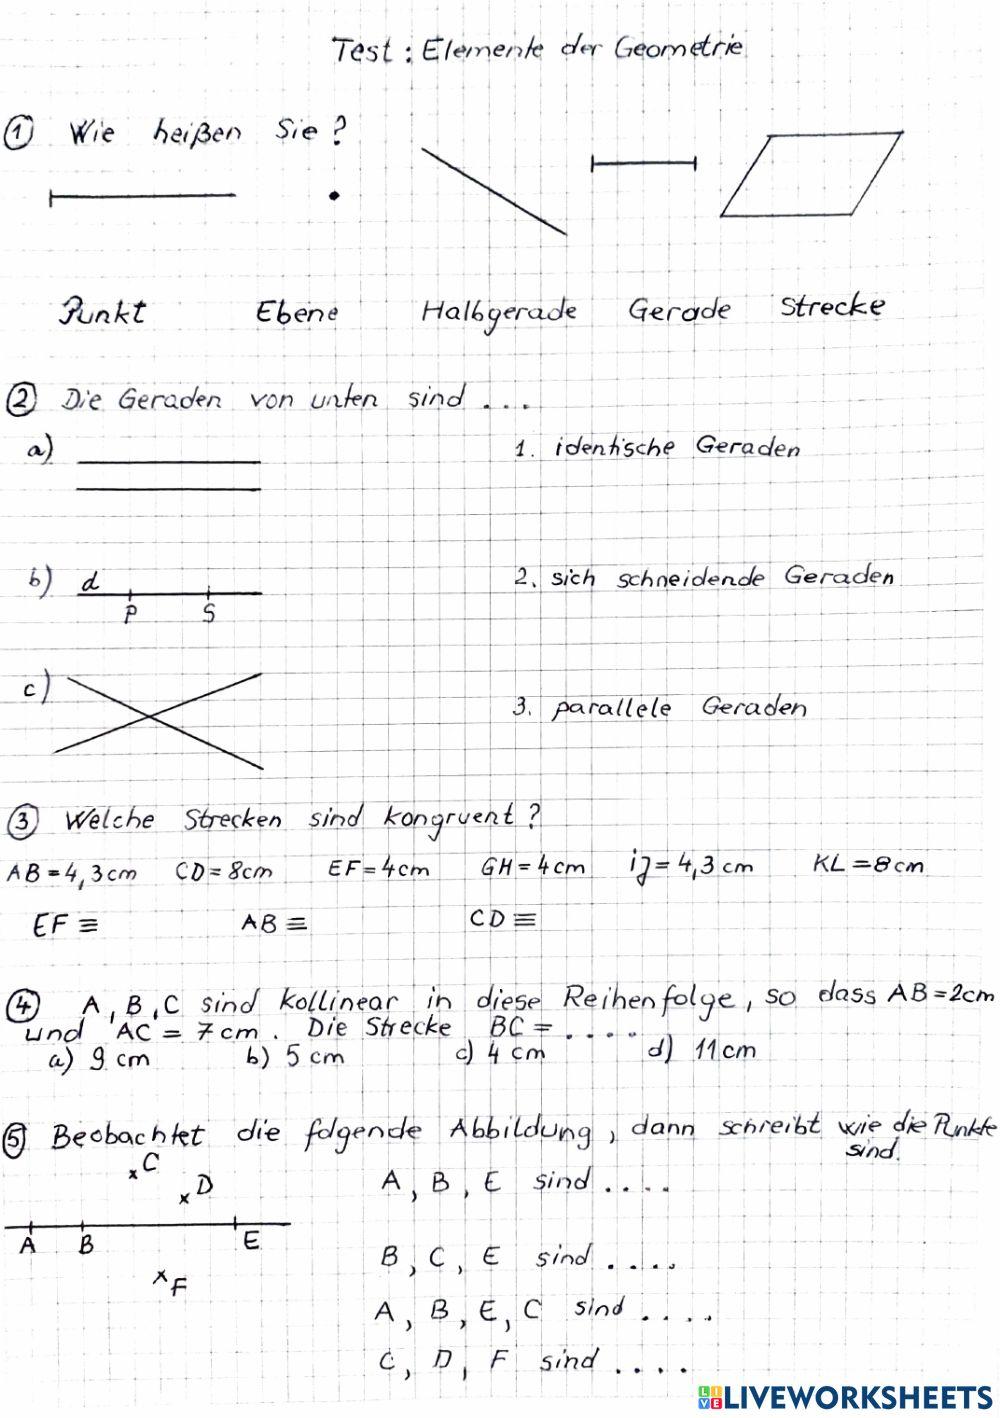 Test: Elemente der Geometrie
① Wie heißen Sie?
Punkt Ebene Halbgerade Gerade Strecke
② Die Geraden von unten sind ...
a) 1. identische Geraden
b) d 2. sich schneidende Geraden
P S
c) 3. parallele Geraden
③ Welche Strecken sind kongruent?
AB=4,3cm CD=8cm EF=4cm GH=4cm ij=4,3cm KL=8cm
EF≡ AB≡ CD≡
④ A, B, C sind kollinear in diese Reihenfolge, so dass AB=2cm
und AC=7cm. Die Strecke BC=....
a) 9 cm b) 5 cm c) 4 cm d) 11cm
⑤ Beobachtet die folgende Abbildung, dann schreibt wie die Punkte
sind.
C
D A, B, E sind ....
A B E
B, C, E sind ....
F
A, B, E, C sind ....
C, D, F sind ....
LIVEWORKSHEETS